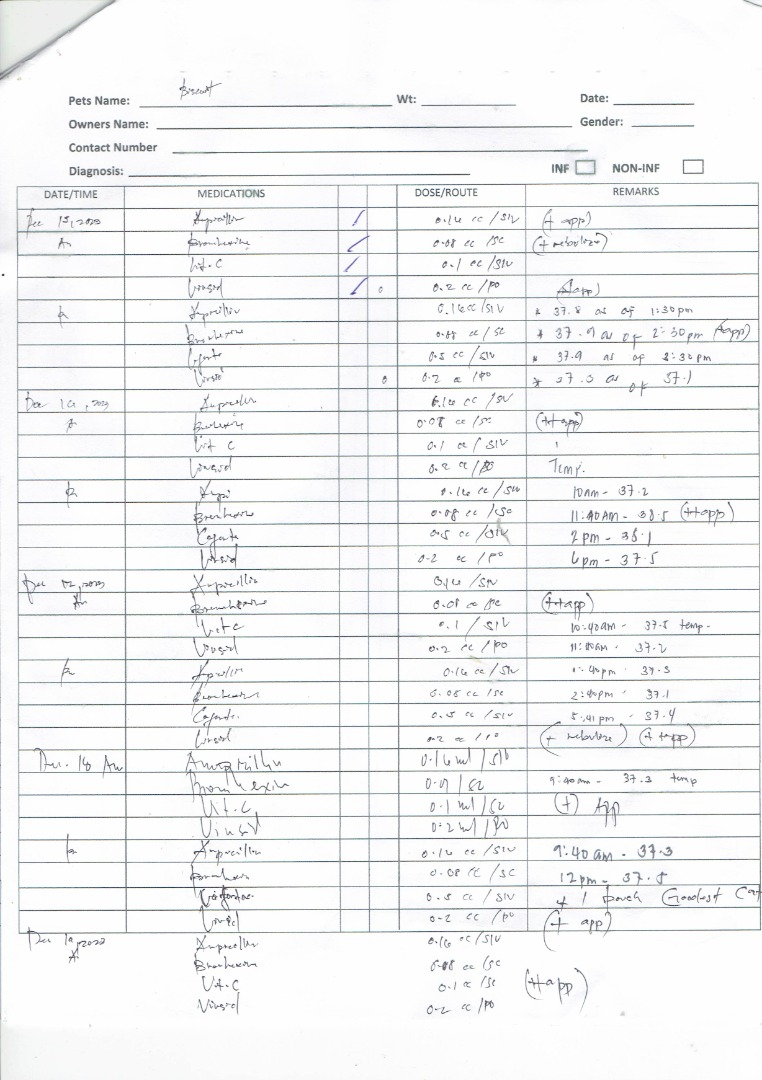 Biscuit
Pets Name: Wt: Date:
Owners Name: Gender:
Contact Number
Diagnosis: INF NON-INF
DATE/TIME MEDICATIONS DOSE/ROUTE REMARKS
Dec 15, 2023 Ampicillin 0.16 cc /SIV (+ app)
Am Bromhexine 0.08 cc /SC (+ nebulize)
Vit. C 0.1 cc /SIV
0.2 cc /PO (+ app)
Ampicillin 0.16cc/SIV * 37.8 as of 1:30pm
Bromhexine 0.08 cc / SC * 37.9 as of 2:30pm (+app)
0.5 cc /SIV * 37.9 as of 2:30pm
0.2 cc /PO * 37.3 as of 37.1
Dec Ampicillin 0.16 cc /SIV
Bromhexine 0.08 cc /SC (++app)
Vit C 0.1 cc / SIV
0.2 cc /PO Temp.
Ampi 0.16 cc /SIV 10am - 37.2
Bromhexine 0.08 cc /SC 11:40AM - 38.5 (++app)
0.5 cc /SIV 2pm - 38.1
0.2 cc /PO 6pm - 37.5
Dec Ampicillin 0.16 /SIV
Am Bromhexine 0.08 cc /SC (++app)
Vit C 0.1 / SIV 10:40am - 37.5 temp.
0.2 cc /PO 11:00am - 37.2
Ampicillin 0.16 cc /SIV 1:40pm - 37.3
Bromhexine 0.08 cc /SC 2:40pm - 37.1
0.5 cc /SIV 5:41 pm - 37.4
0.2 cc /PO (+ nebulize) (+ app)
Dec. 18 Am Ampicillin 0.16ml /SIV
Bromhexin 0.09 / SC 9:40am - 37.3 temp
Vit. C 0.1 ml /SC (+) App
0.2 ml /PO
Ampicillin 0.16 cc /SIV 9:40 am - 37.3
Bromhexin 0.08 cc /SC 12pm - 37.8
0.5 cc / SIV + 1 pouch Goodest Cat
0.2 cc /PO (+ app)
Dec 19, 2023 Ampicillin 0.16 cc/SIV
Bromhexine 0.08 cc /SC
Vit. C 0.1 cc /SC (++app)
0.2 cc /PO